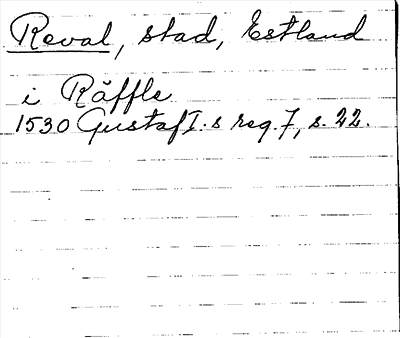 Reval, stad, Estland
i Räffle
1530 Gustaf I.s reg. 7, s. 22.